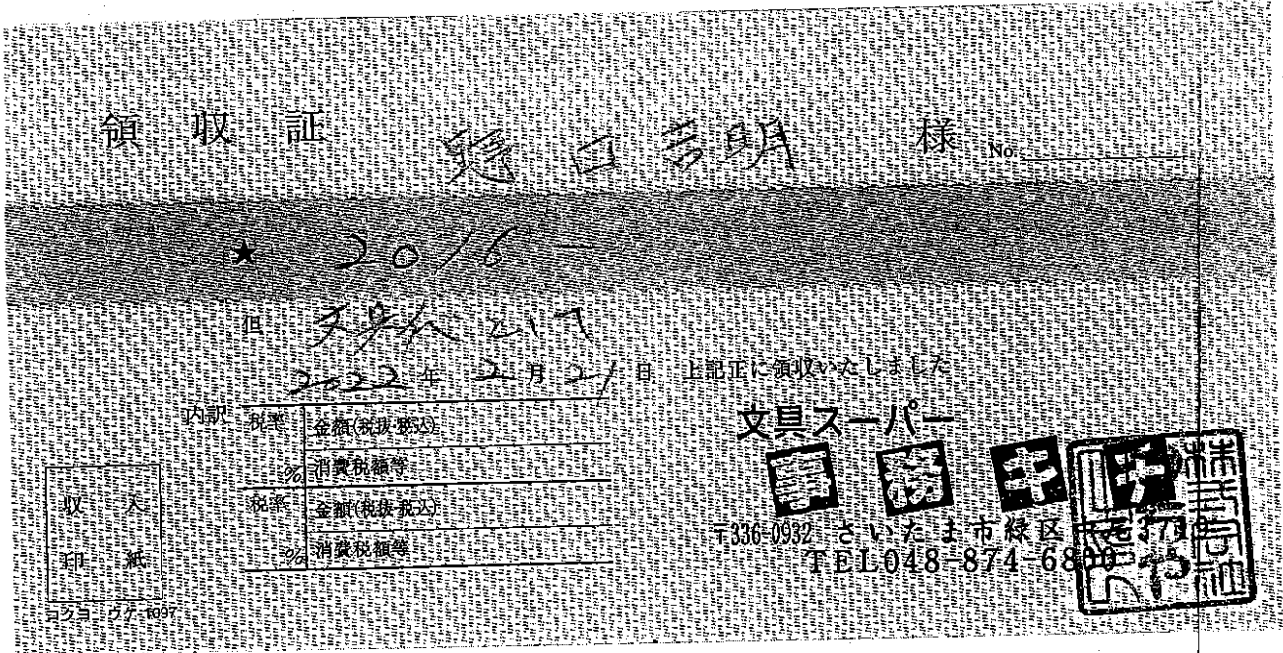 領収証 口吉明 様 No.
★ 2016-
但 文具代として
2022年 2月21日 上記正に領収いたしました
内訳 税率 金額(税抜・税込)
% 消費税額等
税率 金額(税抜・税込)
% 消費税額等
収入
印紙
コクヨ ウケ-1097
文具スーパー
事務キチ
〒336-0932 さいたま市緑区中尾
TEL048-874-6800
株式会社